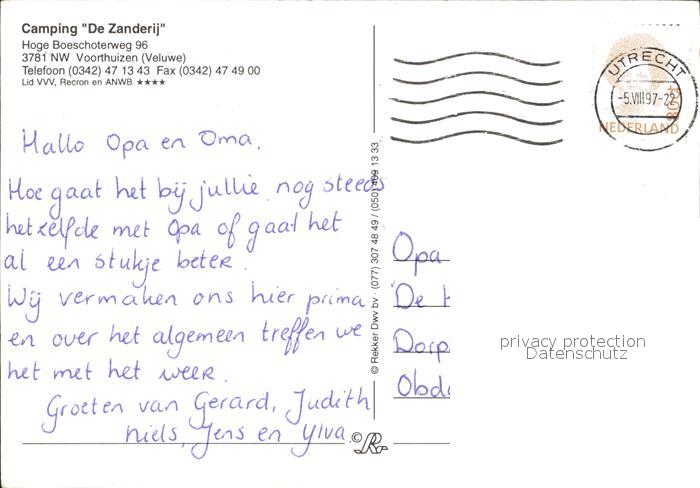 Camping "De Zanderij"
Hoge Boeschoterweg 96
3781 NW Voorthuizen (Veluwe)
Telefoon (0342) 47 13 43 Fax (0342) 47 49 00
Lid VVV, Recron en ANWB ★★★★
UTRECHT
-5.VIII.97-22
NEDERLAND
Hallo Opa en Oma,
Hoe gaat het bij jullie, nog steeds
hetzelfde met Opa of gaat het
al een stukje beter.
Wij vermaken ons hier prima
en over het algemeen treffen we
het met het weer.
Groeten van Gerard, Judith
Niels, Jens en Ylva.
© Rekker Dwv bv · (077) 307 48 49 / (050) 409 13 33
© R
Opa
De
Dorp
Obd
privacy protection
Datenschutz